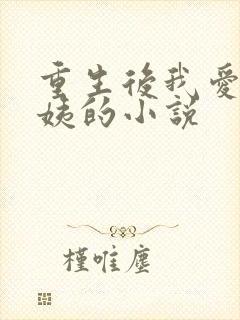 重生後我愛
姨的小說
槿唯塵